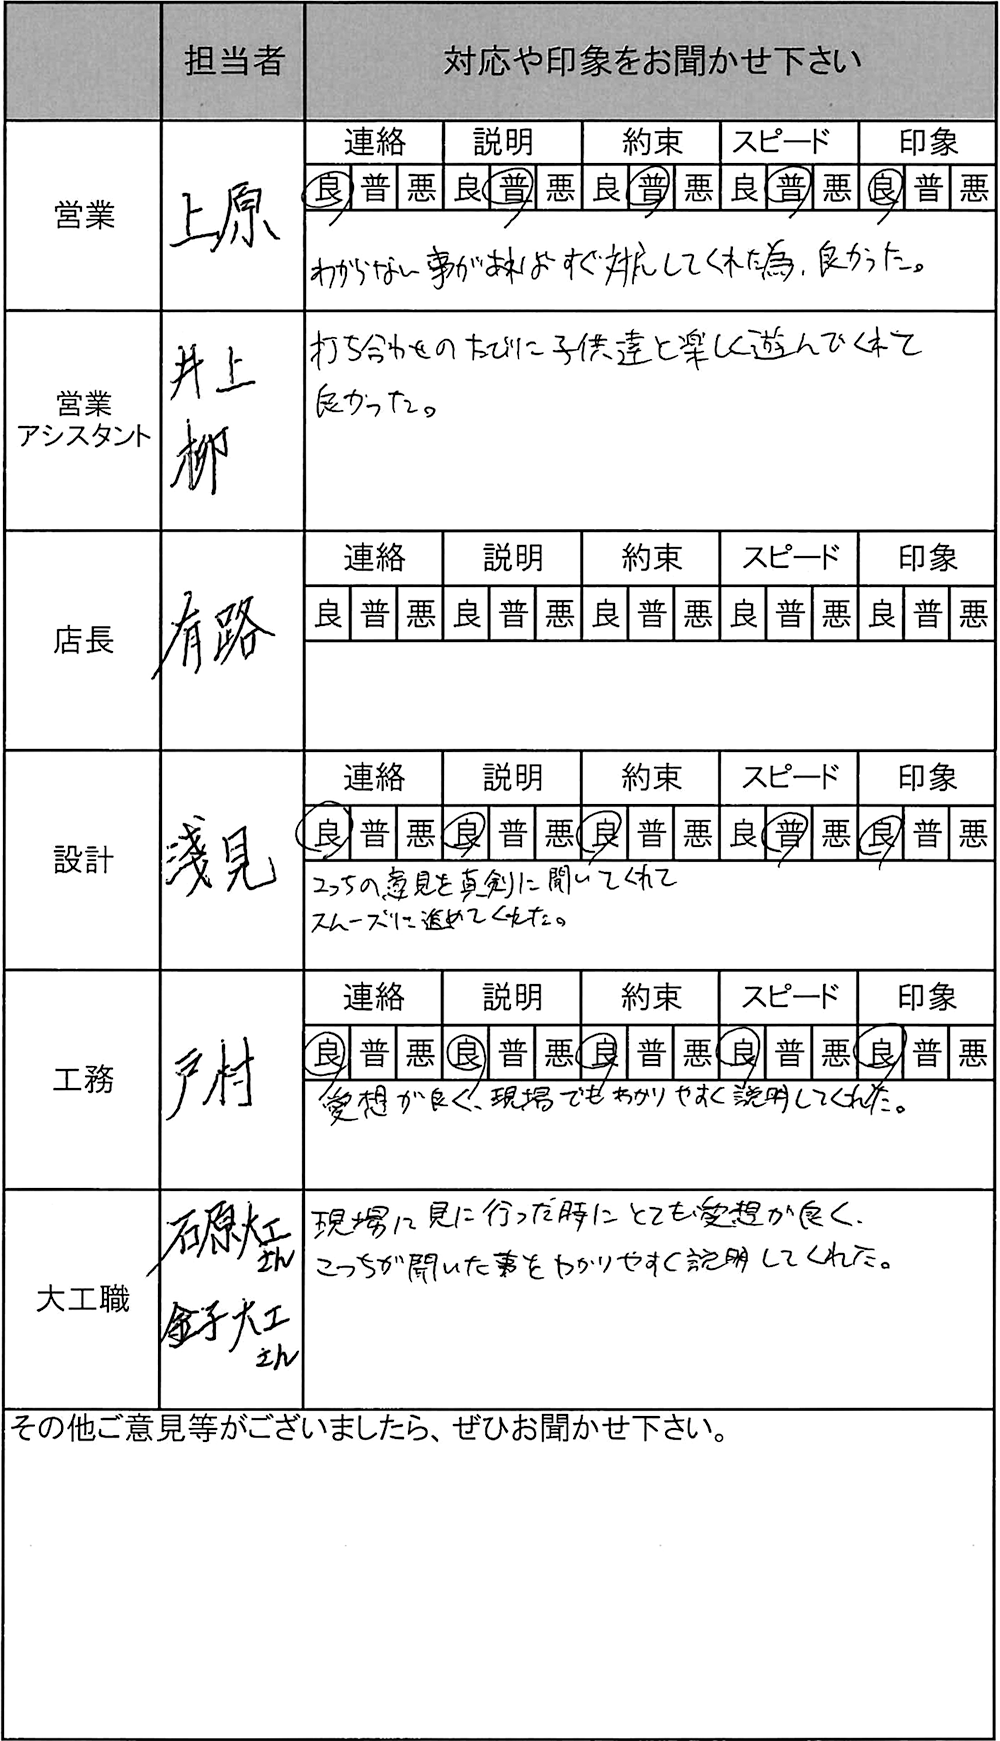 担当者 対応や印象をお聞かせ下さい
連絡 説明 約束 スピード 印象
良 普 悪 良 普 悪 良 普 悪 良 普 悪 良 普 悪
営業 上原
わからない事があればすぐ対応してくれた為、良かった。
営業
アシスタント
井上
柳
打ち合わせのたびに子供達と楽しく遊んでくれて
良かった。
連絡 説明 約束 スピード 印象
良 普 悪 良 普 悪 良 普 悪 良 普 悪 良 普 悪
店長 有路
連絡 説明 約束 スピード 印象
良 普 悪 良 普 悪 良 普 悪 良 普 悪 良 普 悪
設計 淺見
こっちの意見を真剣に聞いてくれて
スムーズに進めてくれた。
連絡 説明 約束 スピード 印象
良 普 悪 良 普 悪 良 普 悪 良 普 悪 良 普 悪
工務 戸村
愛想が良く、現場でもわかりやすく説明してくれた。
大工職
石原大工
さん
金子大工
さん
現場に見に行った時にとても愛想が良く、
こっちが聞いた事をわかりやすく説明してくれた。
その他ご意見等がございましたら、ぜひお聞かせ下さい。